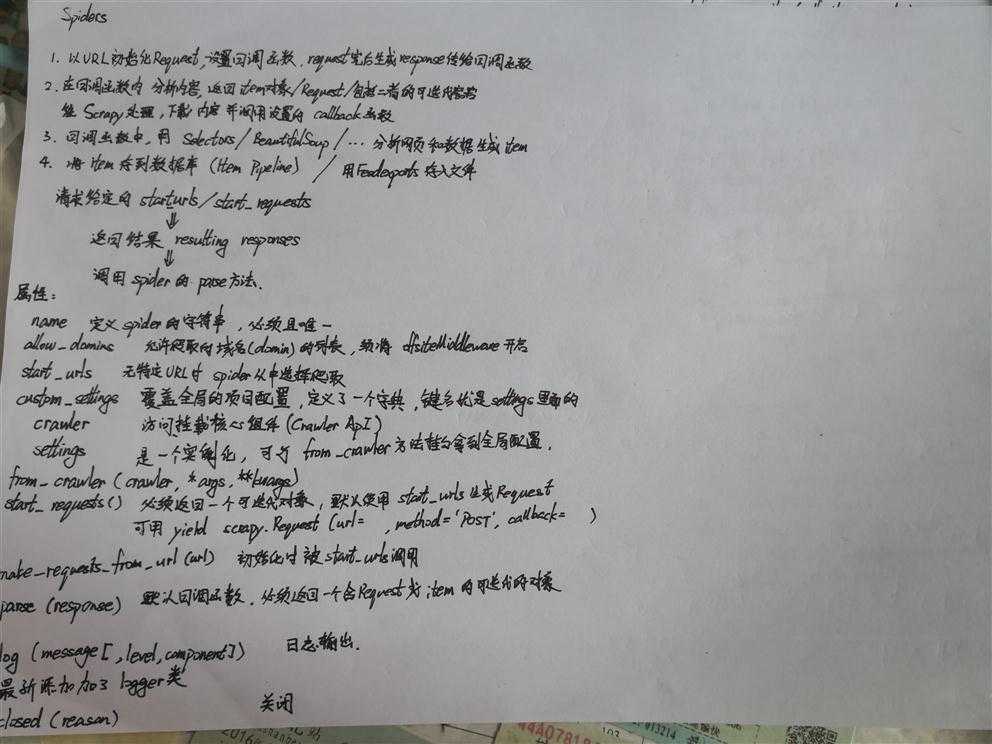 Spiders
1. 以URL初始化Request,设置回调函数. request完后生成response传给回调函数
2. 在回调函数内 分析内容, 返回item对象/Request/包括二者的可迭代容器
经 Scrapy处理, 下载内容 并调用设置的 callback函数
3. 回调函数中, 用 Selectors/BeautifulSoup/… 分析网页和数据生成item
4. 将 item 存到数据库 (Item Pipeline) / 用Feedexports 存入文件
请求给定的 starturls/start_requests
⇓
返回结果 resulting responses
⇓
调用 spider的 parse方法.
属性:
name 定义spider的字符串, 必须且唯一
allow_domins 允许爬取的域名(domin)的列表, 须将 OffsiteMiddleware 开启
start_urls 无特定URL时 spider从中选择爬取
custom_settings 覆盖全局的项目配置, 定义了一个字典, 键名就是settings里面的
crawler 访问挂载核心组件 (Crawler ApI)
settings 是一个实例化, 可 from_crawler方法 拿到全局配置.
from_crawler (crawler, *args, **kwargs)
start_requests() 必须返回一个可迭代对象, 默认使用 start_urls 生成Request
可用 yield scrapy.Request (url= , method='POST', callback= )
make_requests_from_url (url) 初始化时 被start_urls调用
parse (response) 默认回调函数. 必须返回一个含Request或item的可迭代的对象
log (message[,level,component]) 日志输出.
最新添加加了 logger类
closed (reason) 关闭
2016
44A0781
103
13214